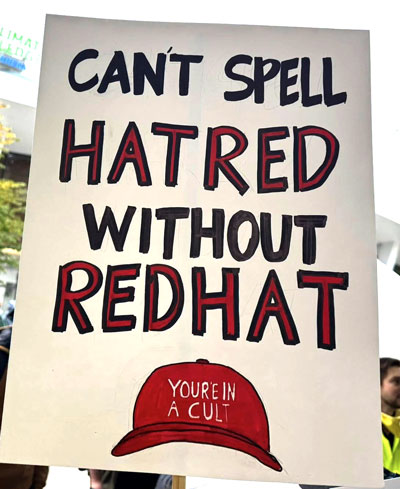 CAN'T SPELL
HATRED
WITHOUT
REDHAT
YOUR'E IN
A CULT